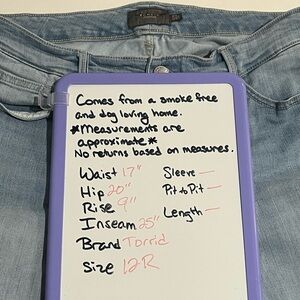 Comes from a smoke free
and dog loving home.
*Measurements are
approximate*
No returns based on measures.
Waist 17"
Hip 20"
Rise 9"
Inseam 25"
Brand Torrid
Size 12R
Sleeve —
Pit to Pit —
Length —